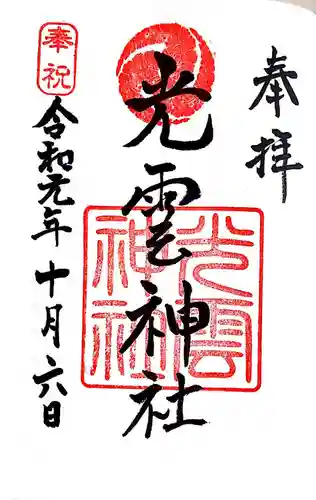 奉拝
光雲神社
光雲神社
奉祝
令和元年十月六日